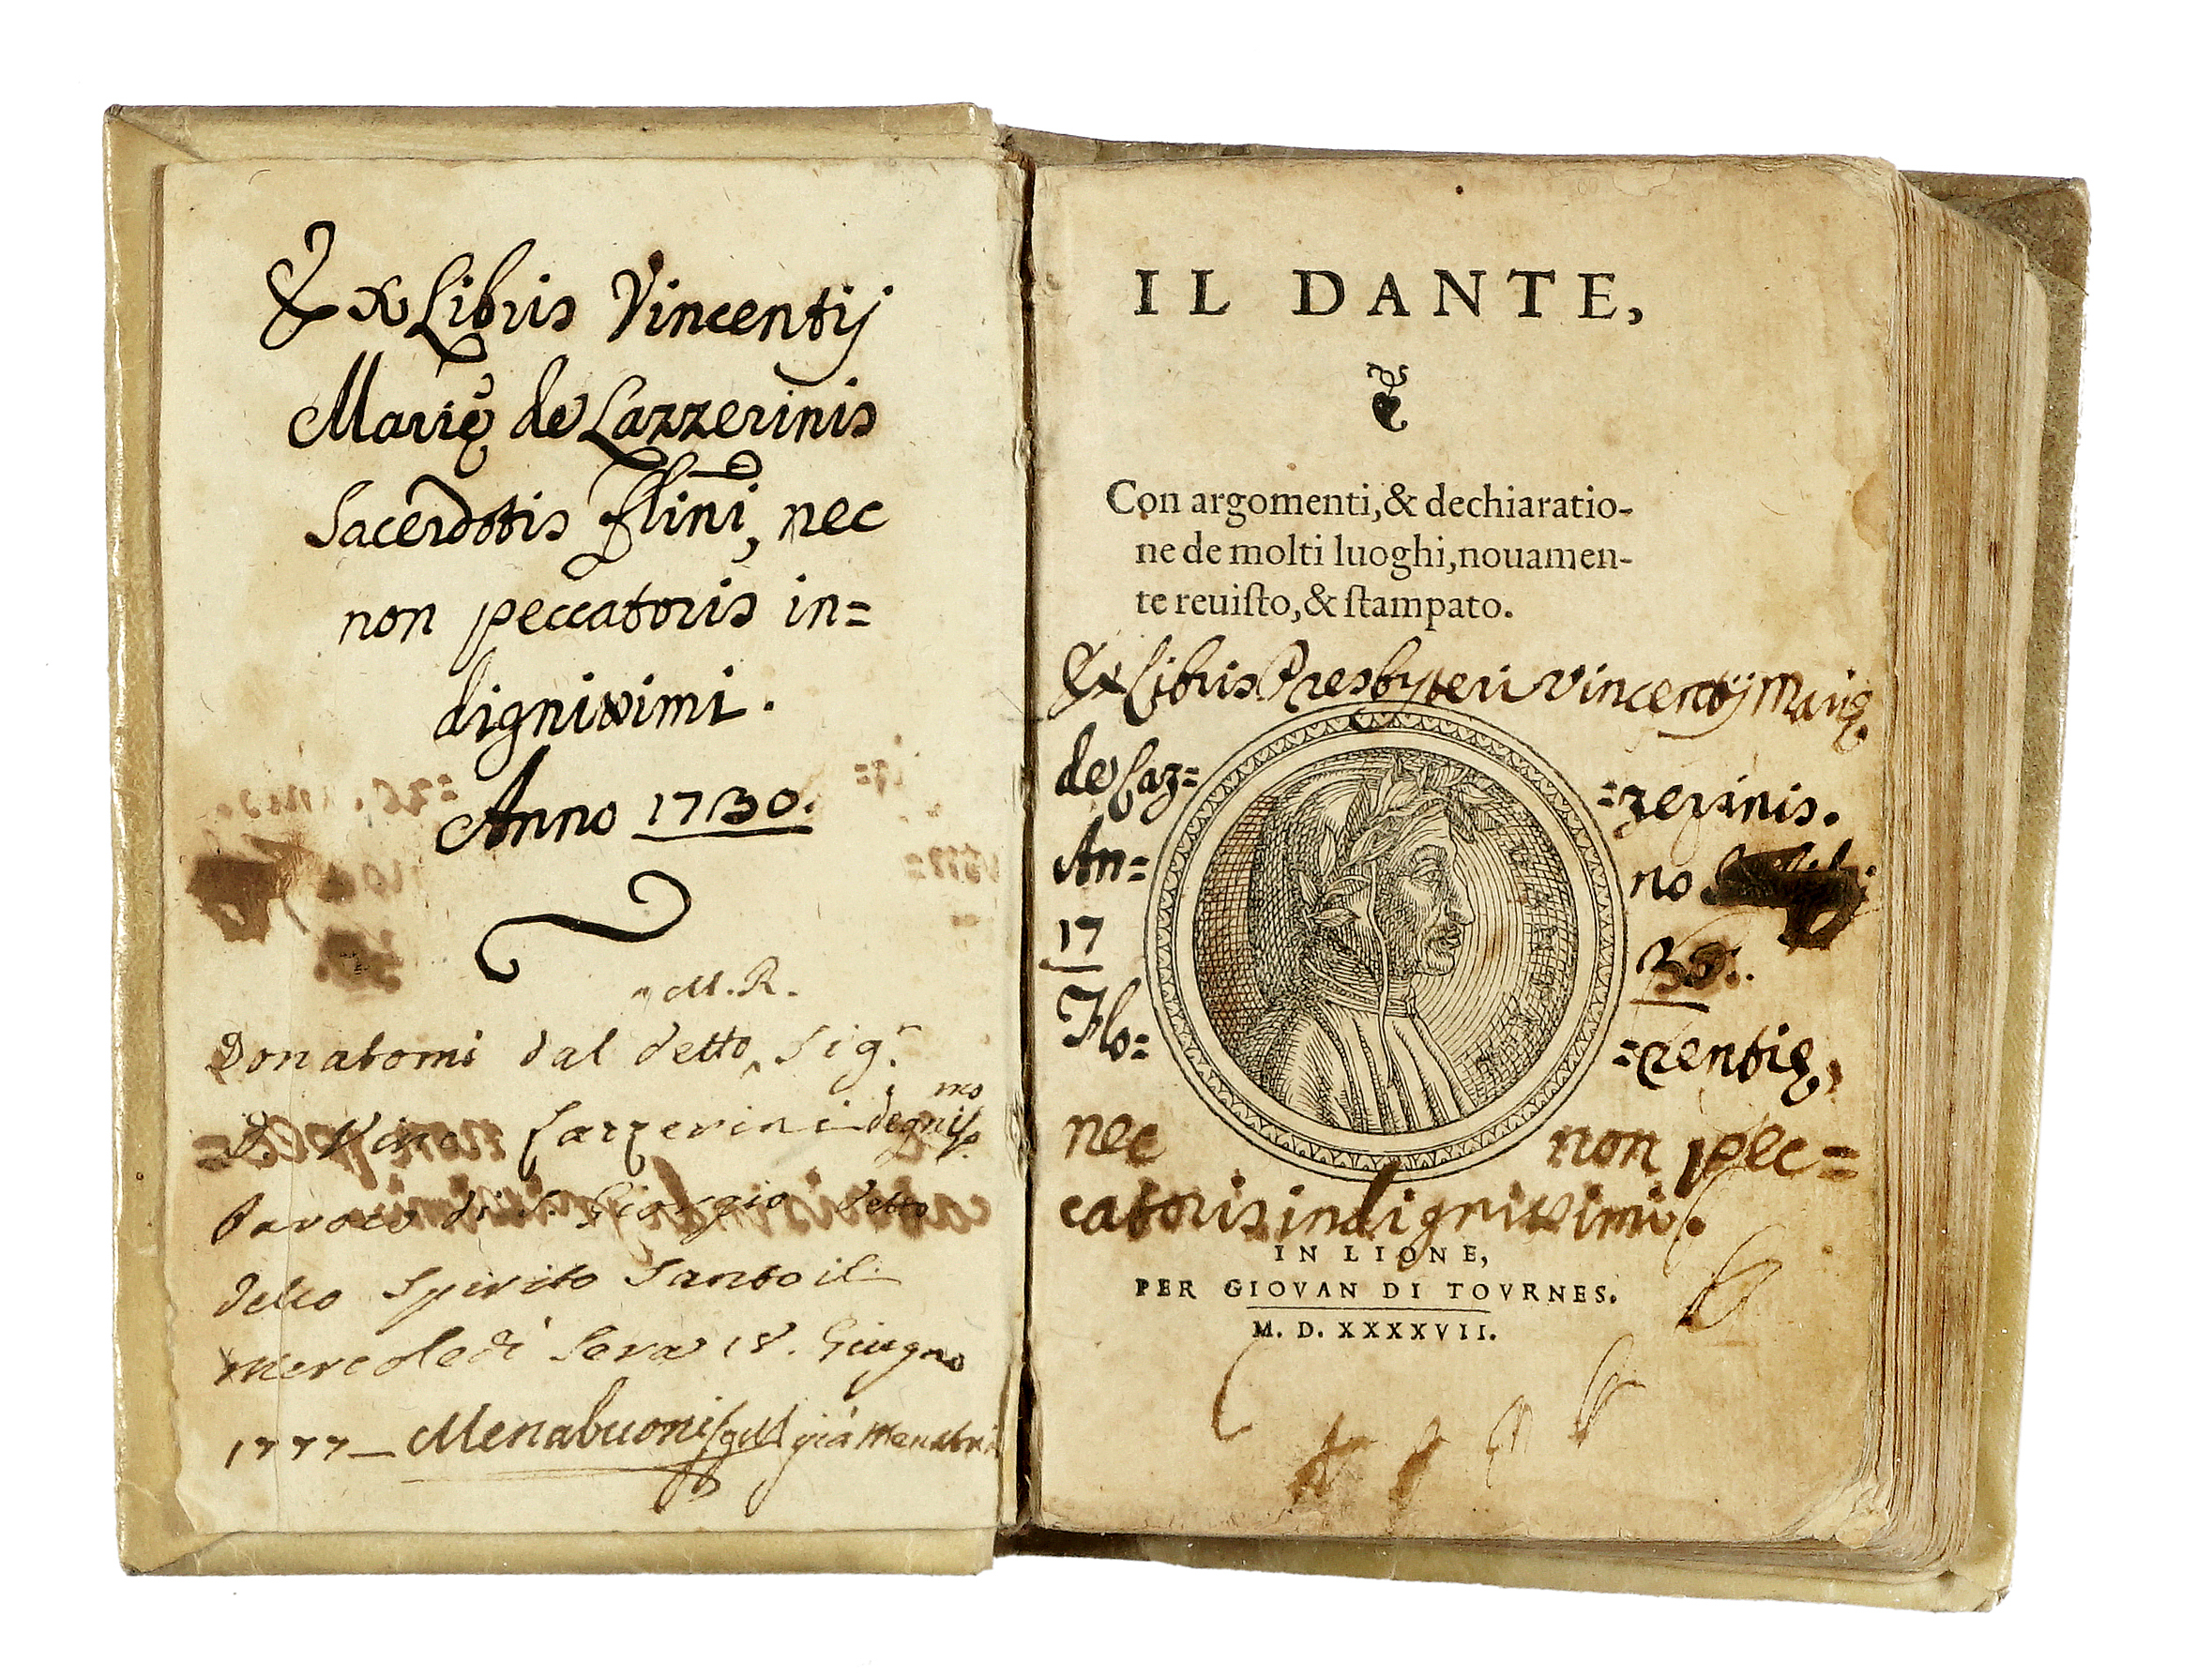 Ex Libris Vincentij
Marię de Lazzerinis
Sacerdotis Flini, nec
non peccatoris in=
dignissimi.
Anno 1730.
M. R.
Donatomi dal detto Sig.
D. Vinc. Lazzerini degniss.mo
Paroco di S. Giorgio detto
dello Spirito Santo il
Mercoledì Sera 18. Giugno
1777 — Menabuoni già
IL DANTE,
Con argomenti, & dechiaratio-
ne de molti luoghi, nouamen-
te reuiſto, & ſtampato.
Ex Libris Presbyteri Vincentij Marię
de Laz= =zerinis.
An= no
17 30.
Flo= =rentię,
nec non pec=
catoris indignissimi.
IN LIONE,
PER GIOVAN DI TOVRNES.
M. D. XXXXVII.